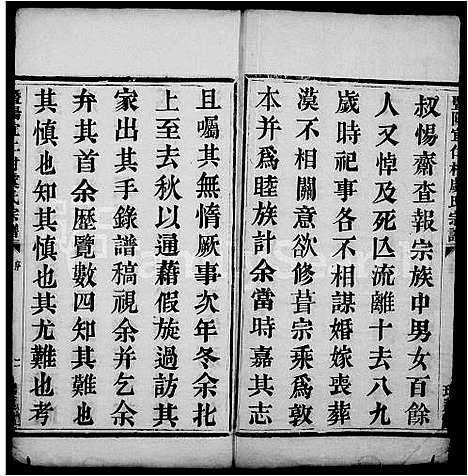 叔惕齋查報宗族中男女百餘
人又悼及死亾流離十去八九
歲時祀典以不相謀婚嫁喪葬
漠不相關意欲修葺宗乘爲敦
本并爲睦族計余當時嘉其志
且囑其無惰厥事次年冬余北
上至去秋以通藉假旋過訪其
家出其手錄譜稿視余并乞余
弁其首余歷覽數四知其難也
其慎也知其慎也其尤難也考